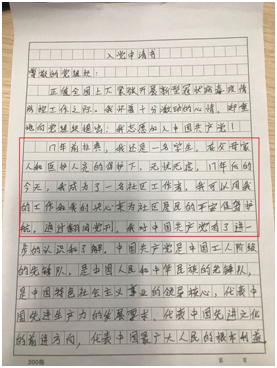 入党申请书
敬爱的党组织:
正值全国上下紧张开展新型冠状病毒疫情
防控工作之际,我怀着十分激动的心情,郑重
地向党组织提出:我志愿加入中国共产党!
17年前非典,我还是一名学生,在父母家
人和医护人员的保护下,无忧无虑,17年后的
今天,我成为了一名社区工作者,我可以用我
的工作和我的决心来为社区居民的平安保驾护
航。通过翻阅党刊,我对中国共产党有了进一
步的认识和了解。中国共产党是中国工人阶级
的先锋队,是中国人民和中华民族的先锋队,
是中国特色社会主义事业的领导核心,代表中
国先进生产力的发展要求,代表中国先进文化
的前进方向,代表中国最广大人民的根本利益
300格